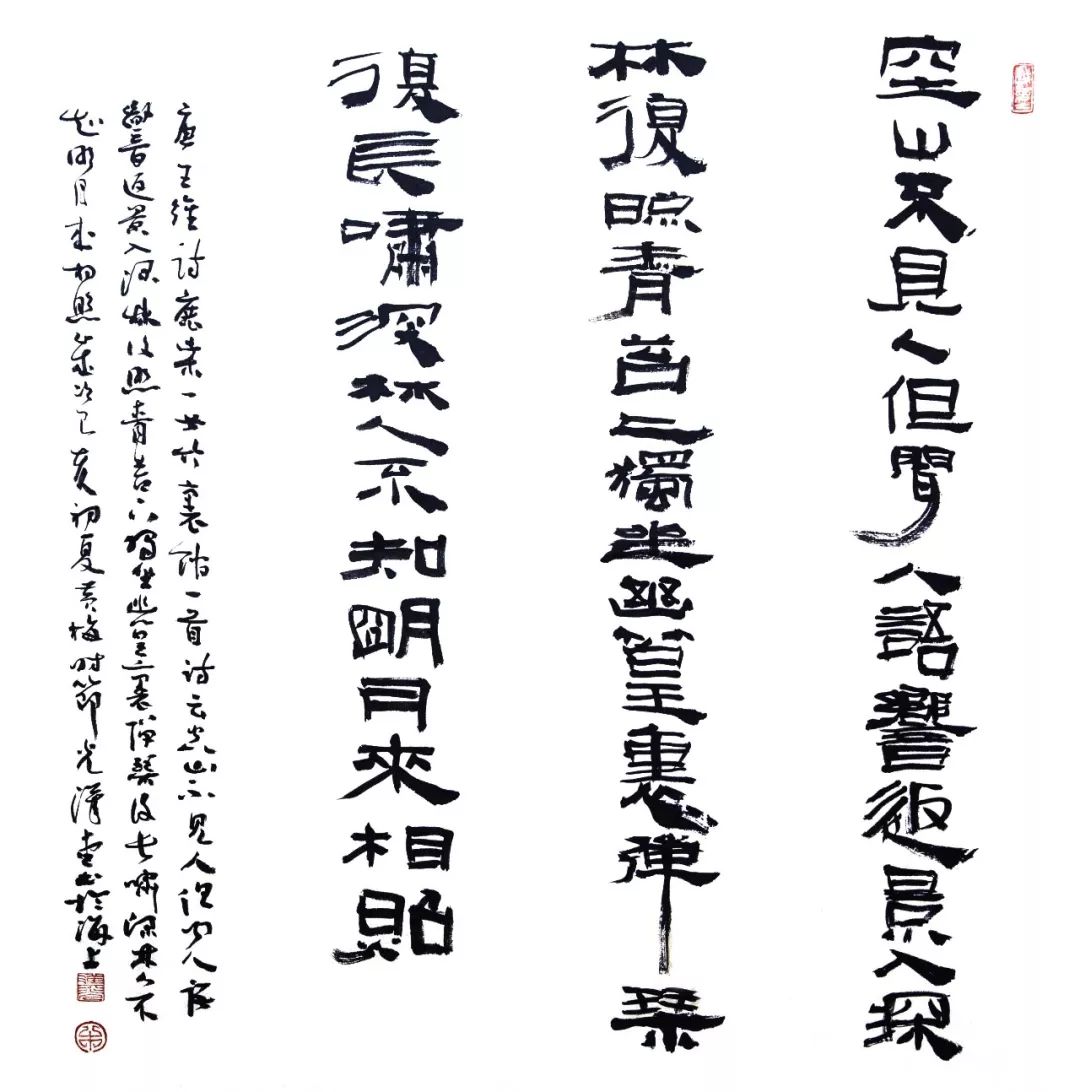 空山不見人但聞人語響返景入深
林復照青苔上獨坐幽篁裏彈琴
復長嘯深林人不知明月來相照
唐王維詩鹿柴一竹裏館一首詩云空山不見人但聞人語
響返景入深林復照青苔上獨坐幽篁裏彈琴復長嘯深林人不
知明月來相照歲次己亥初夏黃梅時節光漢書於海上